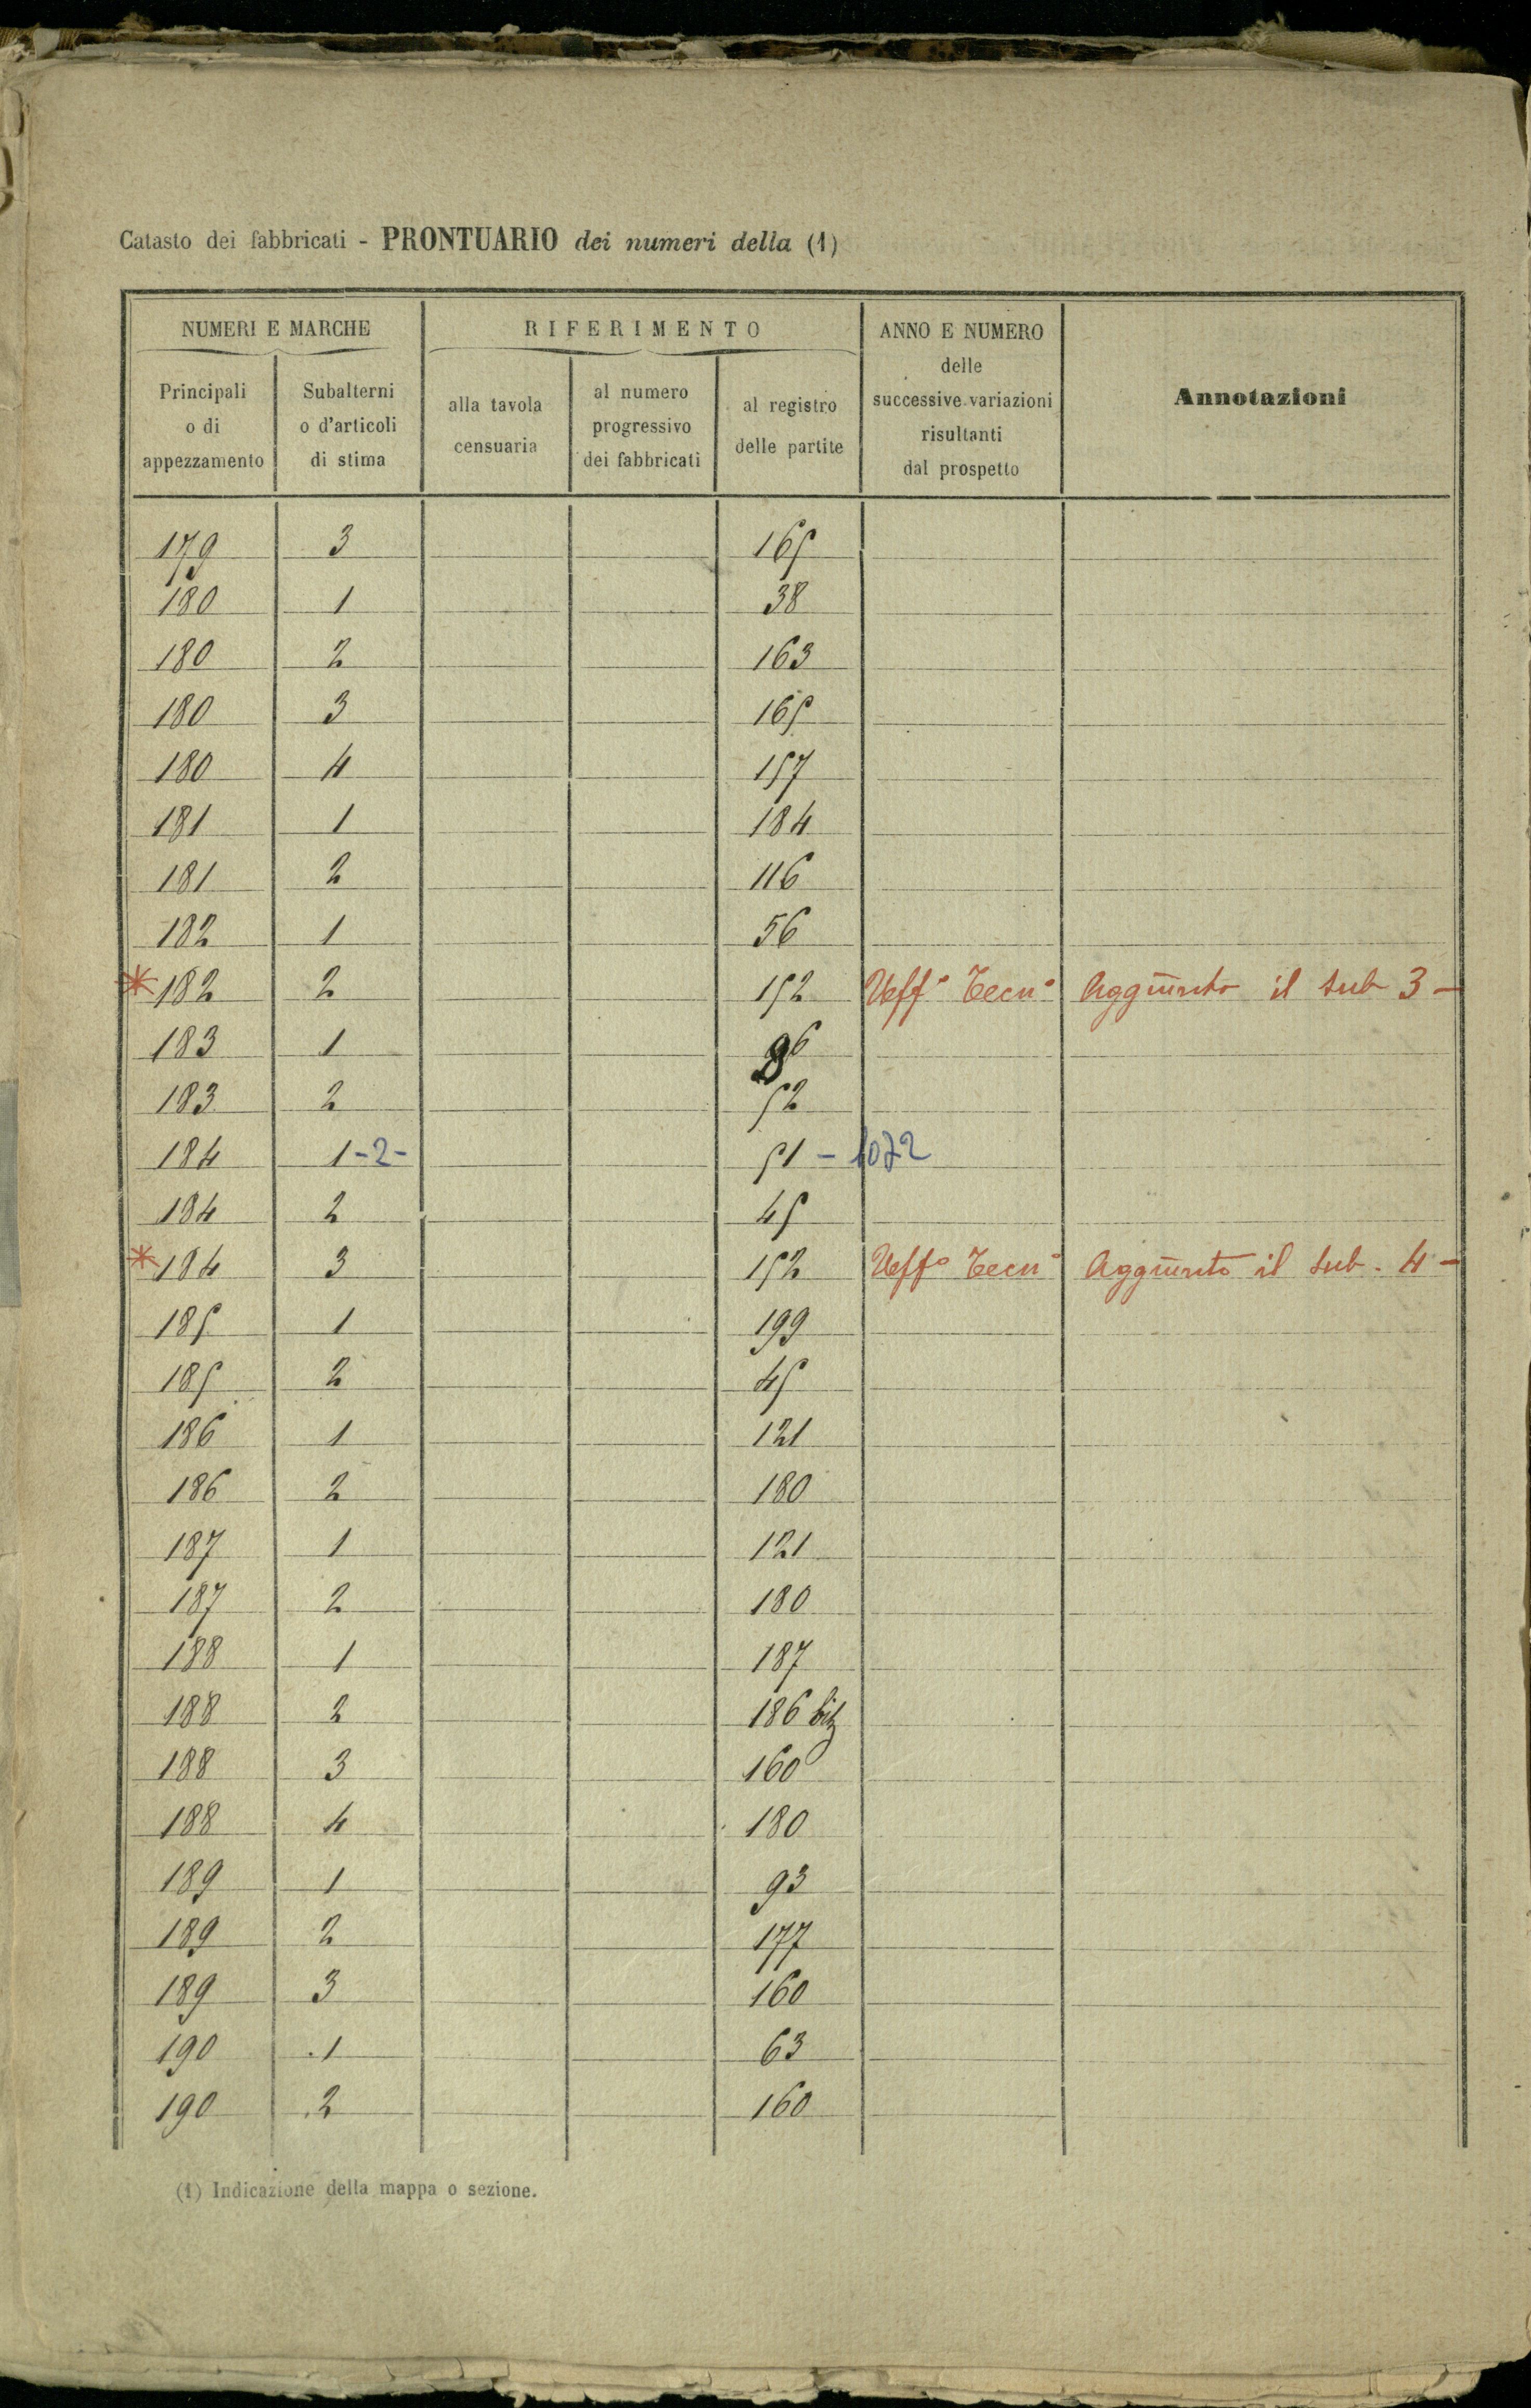 Catasto dei fabbricati - PRONTUARIO dei numeri della (1)
NUMERI E MARCHE RIFERIMENTO ANNO E NUMERO delle successive variazioni risultanti dal prospetto Annotazioni
Principali o di appezzamento Subalterni o d'articoli di stima alla tavola censuaria al numero progressivo dei fabbricati al registro delle partite
179 3 165
180 1 38
180 2 163
180 3 165
180 4 157
181 1 184
181 2 116
182 1 56
* 182 2 152 Uff° Tecn° Aggiunto il sub 3 -
183 1 96
183 2 52
184 1-2- 51 - 1072
184 2 45
* 184 3 152 Uff° Tecn° Aggiunto il sub. 4 -
185 1 199
185 2 45
186 1 121
186 2 180
187 1 121
187 2 180
188 1 187
188 2 186 bis
188 3 160
188 4 180
189 1 93
189 2 177
189 3 160
190 1 63
190 2 160
(1) Indicazione della mappa o sezione.